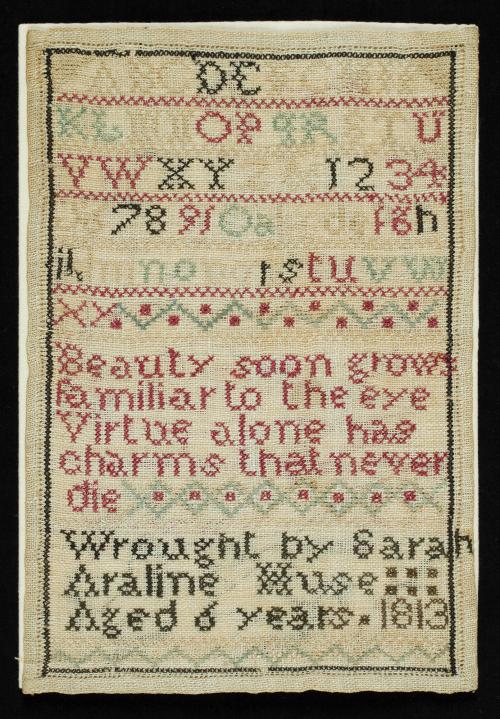 DE
KL OP QR U
VWXY 1234
78910a fgh
ik mno rstuvw
xy
Beauty soon grows
familiar to the eye
Virtue alone has
charms that never
die
Wrought by Sarah
Araline Muse
Aged 6 years. 1813